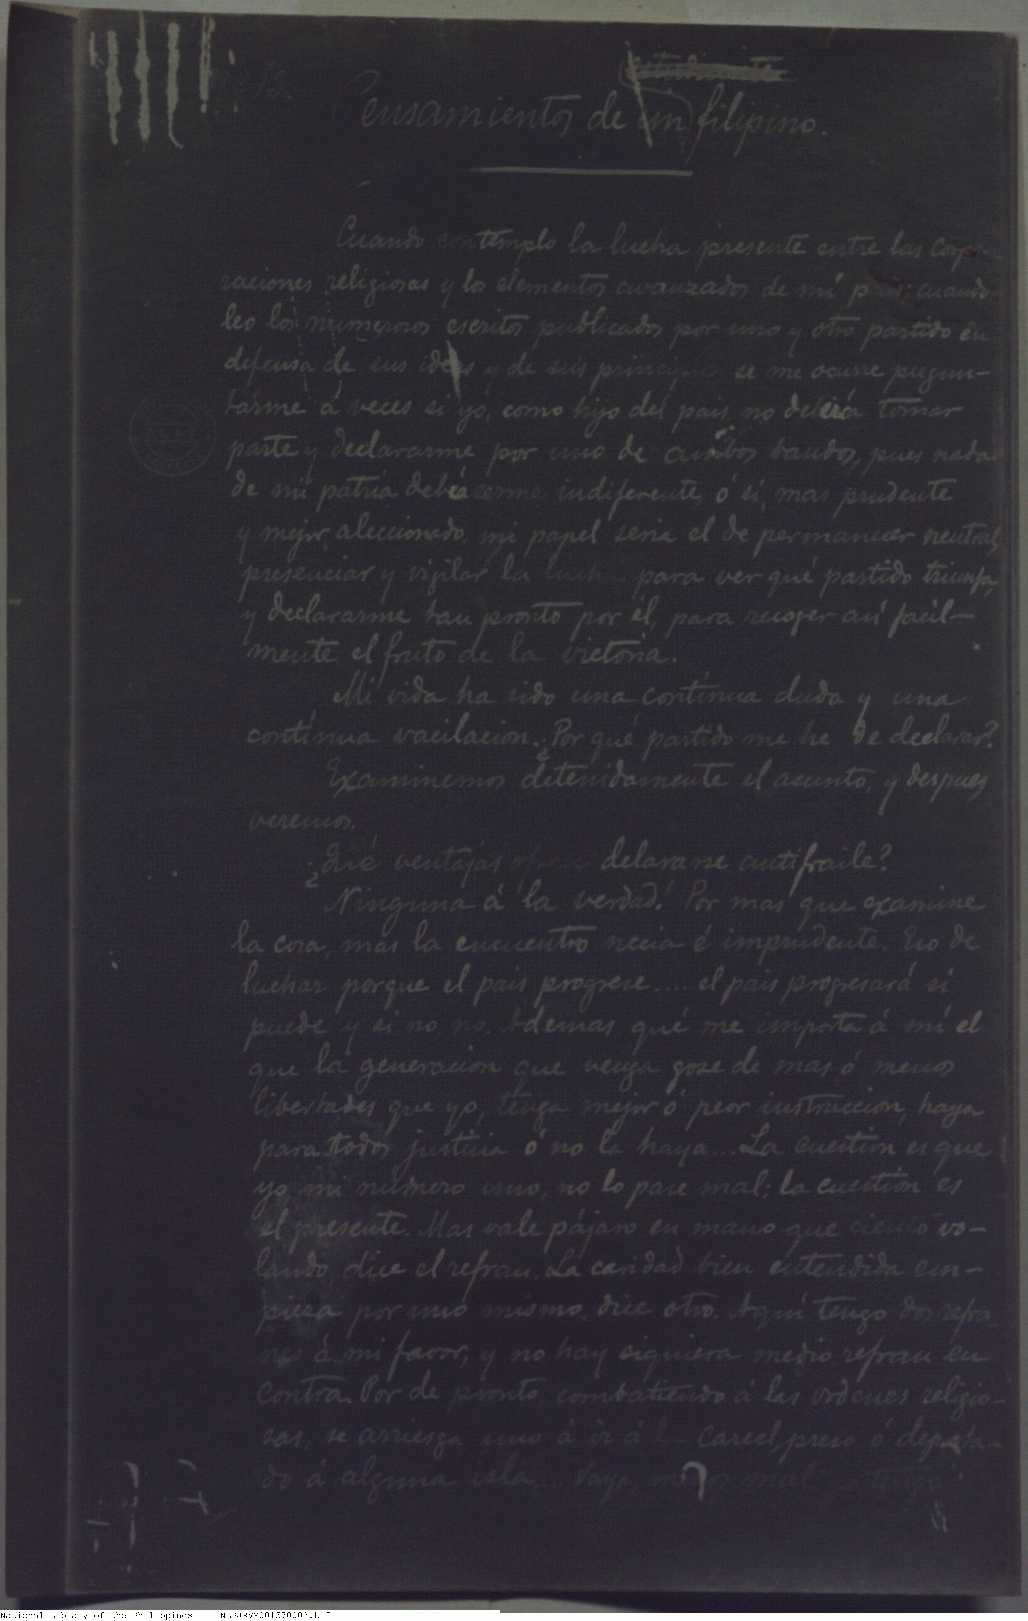 Pensamientos de un filipino.
Cuando contemplo la lucha presente entre las corpo-
raciones religiosas y los elementos avanzados de mi pais, cuando
leo los numerosos escritos publicados por uno y otro partido en
defensa de sus ideas y de sus principios se me ocurre pregun-
tarme á veces si yo, como hijo del pais, no deberia tomar
parte y declararme por uno de ambos bandos, pues nada
de mi patria debia serme indiferente, ó si, mas prudente
y mejor aleccionado, mi papel seria el de permanecer neutral,
presenciar y vigilar la lucha para ver qué partido triunfa,
y declararme tan pronto por él, para recoger asi facil-
mente el fruto de la victoria.
Mi vida ha sido una continua duda y una
continua vacilacion. ¿Por qué partido me he de declarar?
Examinemos detenidamente el asunto, y despues
veremos.
¿Qué ventajas ofrece delararse antifraile?
Ninguna á la verdad! Por mas que examine
la cosa, mas la encuentro necia é imprudente. Eso de
luchar porque el pais progrese.... el pais progresará si
puede y si no no. Ademas qué me importa á mí el
que la generacion que venga goze de mas ó menos
libertades que yo, tenga mejor ó peor instruccion, haya
para todos justicia ó no la haya... La cuestion es que
yo, mi numero uno, no lo pase mal; la cuestion es
el presente. Mas vale pájaro en mano que ciento vo-
lando, dice el refran. La caridad bien entendida em-
pieza por uno mismo, dice otro. Aquí tengo dos refra-
nes á mi favor, y no hay siquiera medio refran en
contra. Por de pronto, combatiendo á las ordenes religio-
sas, se arriesga uno á ir á la carcel, preso ó deporta-
do á alguna isla... Vaya, menos mal
National Library of the Philippines